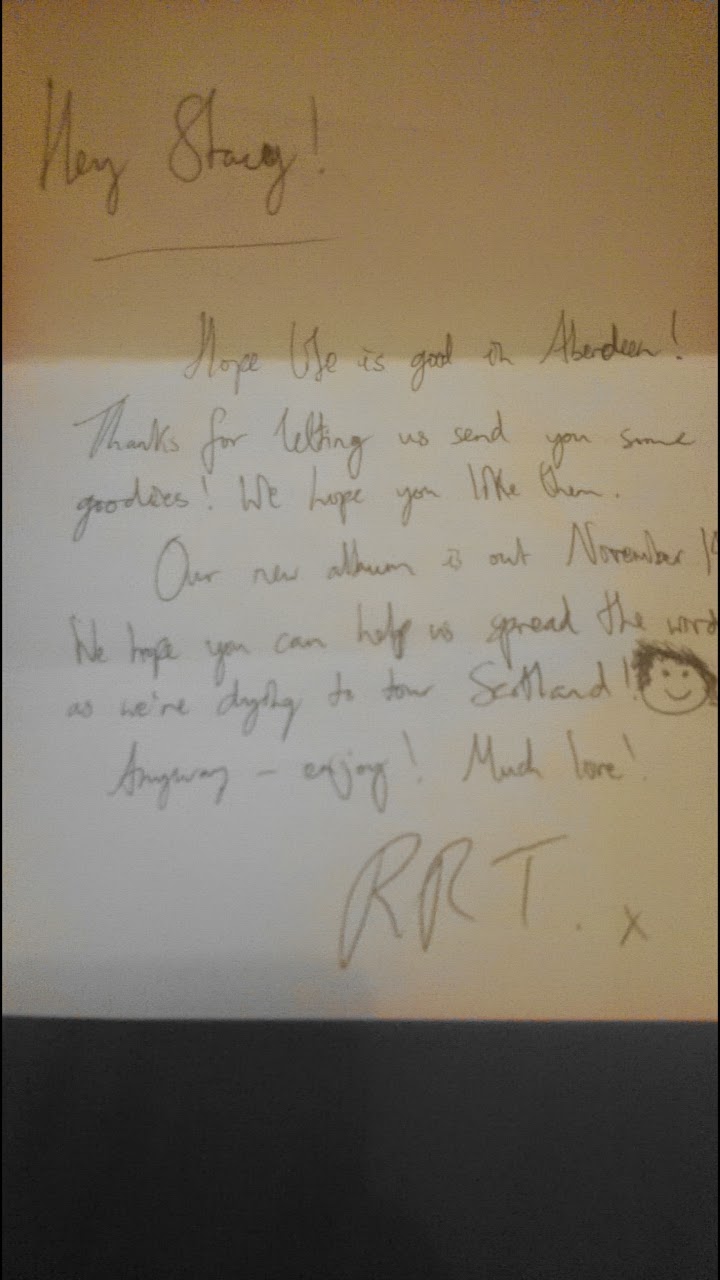 Hey Stacey!
Hope life is good in Aberdeen!
Thanks for letting us send you some
goodies! We hope you like them.
Our new album is out November
We hope you can help us spread the word
as we're dying to tour Scotland!
Anyway - enjoy! Much love!
RRT. x